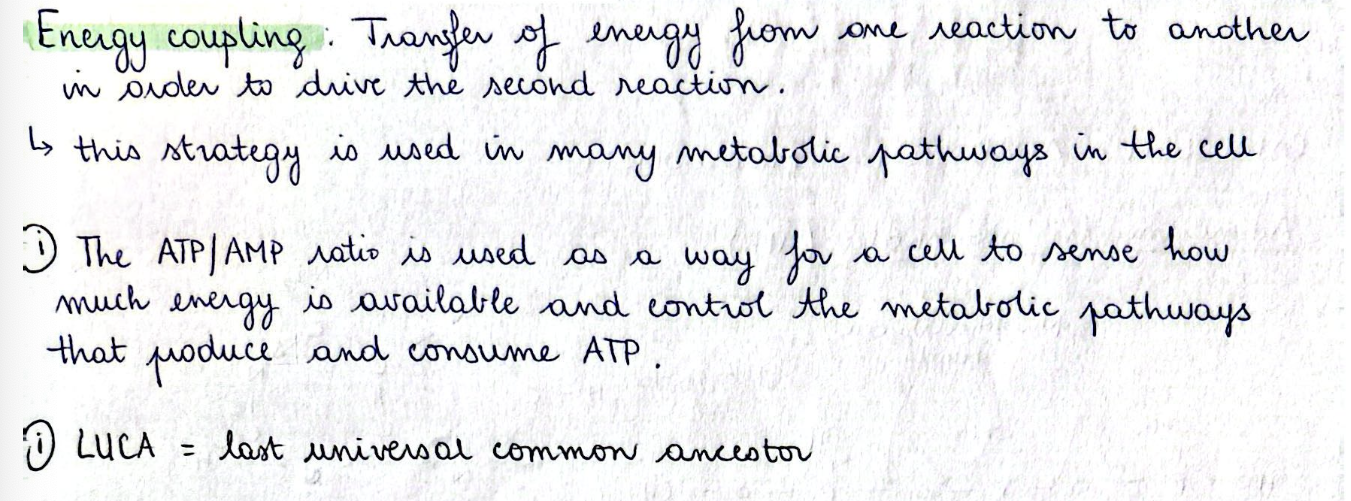 Energy coupling : Transfer of energy from one reaction to another
in order to drive the second reaction.
↳ this strategy is used in many metabolic pathways in the cell
ⓘ The ATP/AMP ratio is used as a way for a cell to sense how
much energy is available and control the metabolic pathways
that produce and consume ATP.
ⓘ LUCA = last universal common ancestor